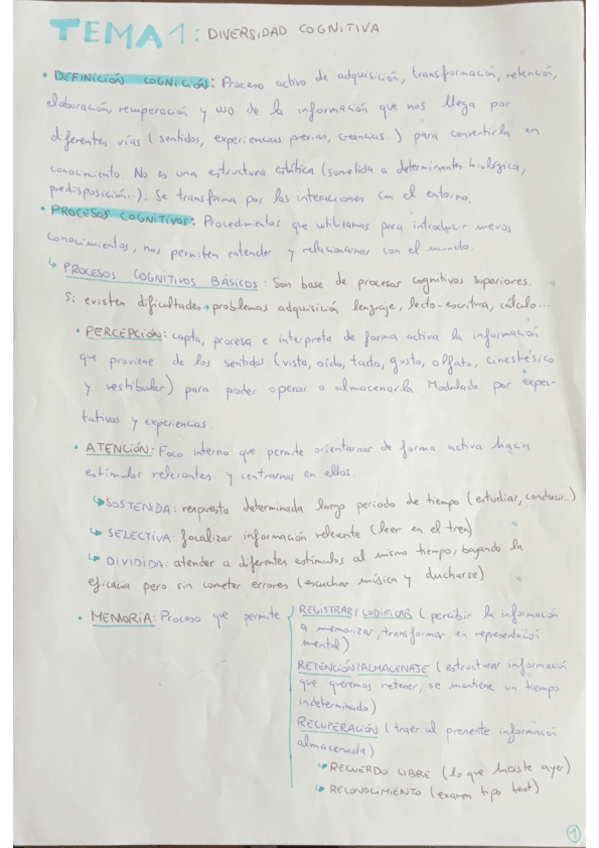 TEMA 1: DIVERSIDAD COGNITIVA
• DEFINICIÓN COGNICIÓN: Proceso activo de adquisición, transformación, retención,
elaboración, recuperación y uso de la información que nos llega por
diferentes vías (sentidos, experiencias previas, creencias...) para convertirla en
conocimiento. No es una estructura estática (sometida a determinantes biológica,
predisposición...). Se transforma por las interacciones con el entorno.
• PROCESOS COGNITIVOS: Procedimientos que utilizamos para introducir nuevos
conocimientos, nos permiten entender y relacionarnos con el mundo.
↳ PROCESOS COGNITIVOS BÁSICOS: Son base de procesos cognitivos superiores.
Si existen dificultades → problemas adquisición lenguaje, lecto-escritura, cálculo...
• PERCEPCIÓN: capta, procesa e interpreta de forma activa la información
que proviene de los sentidos (vista, oído, tacto, gusto, olfato, cinestésico
y vestibular) para poder operar o almacenarla. Modulado por expec-
tativas y experiencias.
• ATENCIÓN: Foco interno que permite orientarnos de forma activa hacia
estímulos relevantes y centrarnos en ellos.
↳ SOSTENIDA: respuesta determinada largo periodo de tiempo (estudiar, conducir...)
↳ SELECTIVA: focalizar información relevante (leer en el tren)
↳ DIVIDIDA: atender a diferentes estímulos al mismo tiempo, bajando la
eficacia pero sin cometer errores (escuchar música y ducharse)
• MEMORIA: Proceso que permite
REGISTRAR/CODIFICAR (percibir la información
a memorizar, transformar en representación
mental)
RETENCIÓN/ALMACENAJE (estructurar información
que queremos retener, se mantiene un tiempo
indeterminado)
RECUPERACIÓN (traer al presente información
almacenada)
↳ RECUERDO LIBRE (lo que hiciste ayer)
↳ RECONOCIMIENTO (examen tipo test)
1